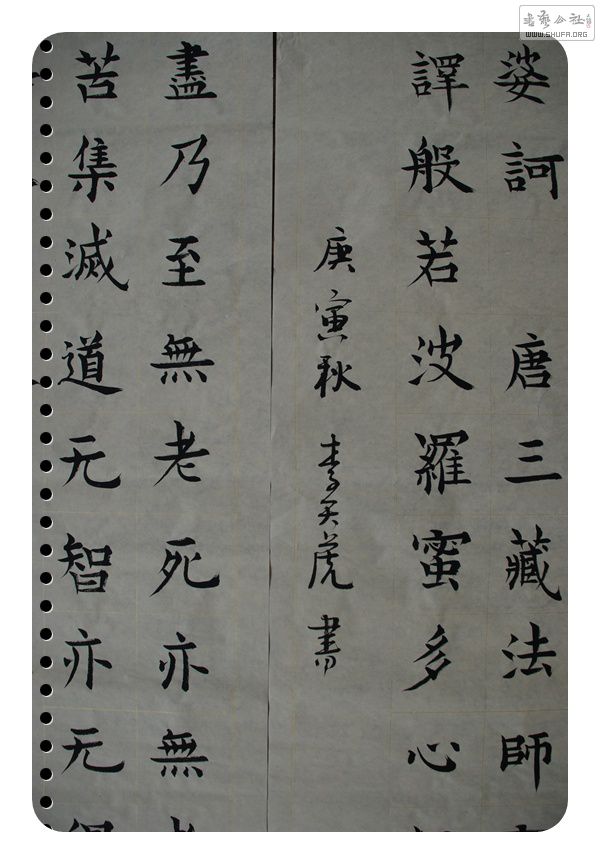 書藝公社
WWW.SHUFA.ORG
娑訶 唐三藏法師
譯般若波羅蜜多心
庚寅秋 李天虎 書
盡乃至無老死亦無
苦集滅道无智亦无